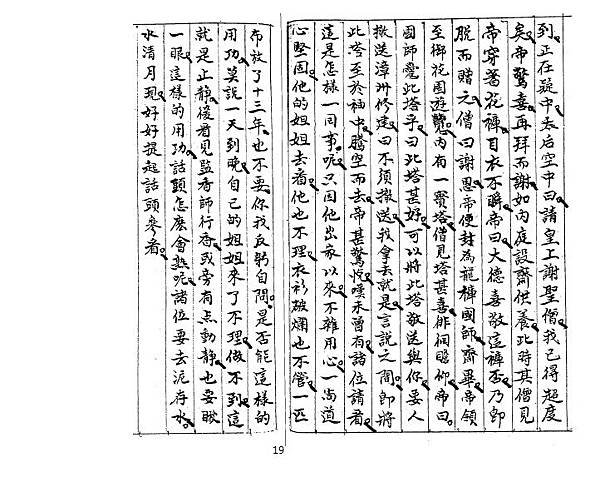 到。正在疑中。太后空中曰。諸皇上謝聖僧。我已得超度
矣。帝驚喜。再拜而謝。如內庭設齋供養。此時其僧見
帝穿著花褲。目衣不瞬。帝曰。大德喜歡這褲否。乃即
脫而賜之。僧曰。謝恩。帝便封為龍褲國師。齋畢。帝領
至御花園遊覽。內有一寶塔。僧見塔甚喜。徘徊瞻仰。帝曰。
國師愛此塔乎。曰此塔甚好。可以將此塔敬送與你。要人
撤送漳洲修建。曰不須撤送。我拿去就是。言說之間。即將
此塔至於袖中。騰空而去。帝甚驚悅。嘆未曾有。諸位請看。
這是怎樣一回事呢。只因他出家以來不雜用心。一尚道
心堅固。他的姐姐去看他也不理。衣衫破爛也不管。一匹
布放了十三年。也不要。你我反躬自問。是否能這樣的
用功。莫說一天到晚。自己的姐姐來了不理。做不到。這
就是止靜後看見監香師行香。或旁有点動靜。也要瞅
一眼。這樣的用功。話頭怎麼會熟呢。諸位要去泥存水。
水清月現。好好提起話頭參看。
19